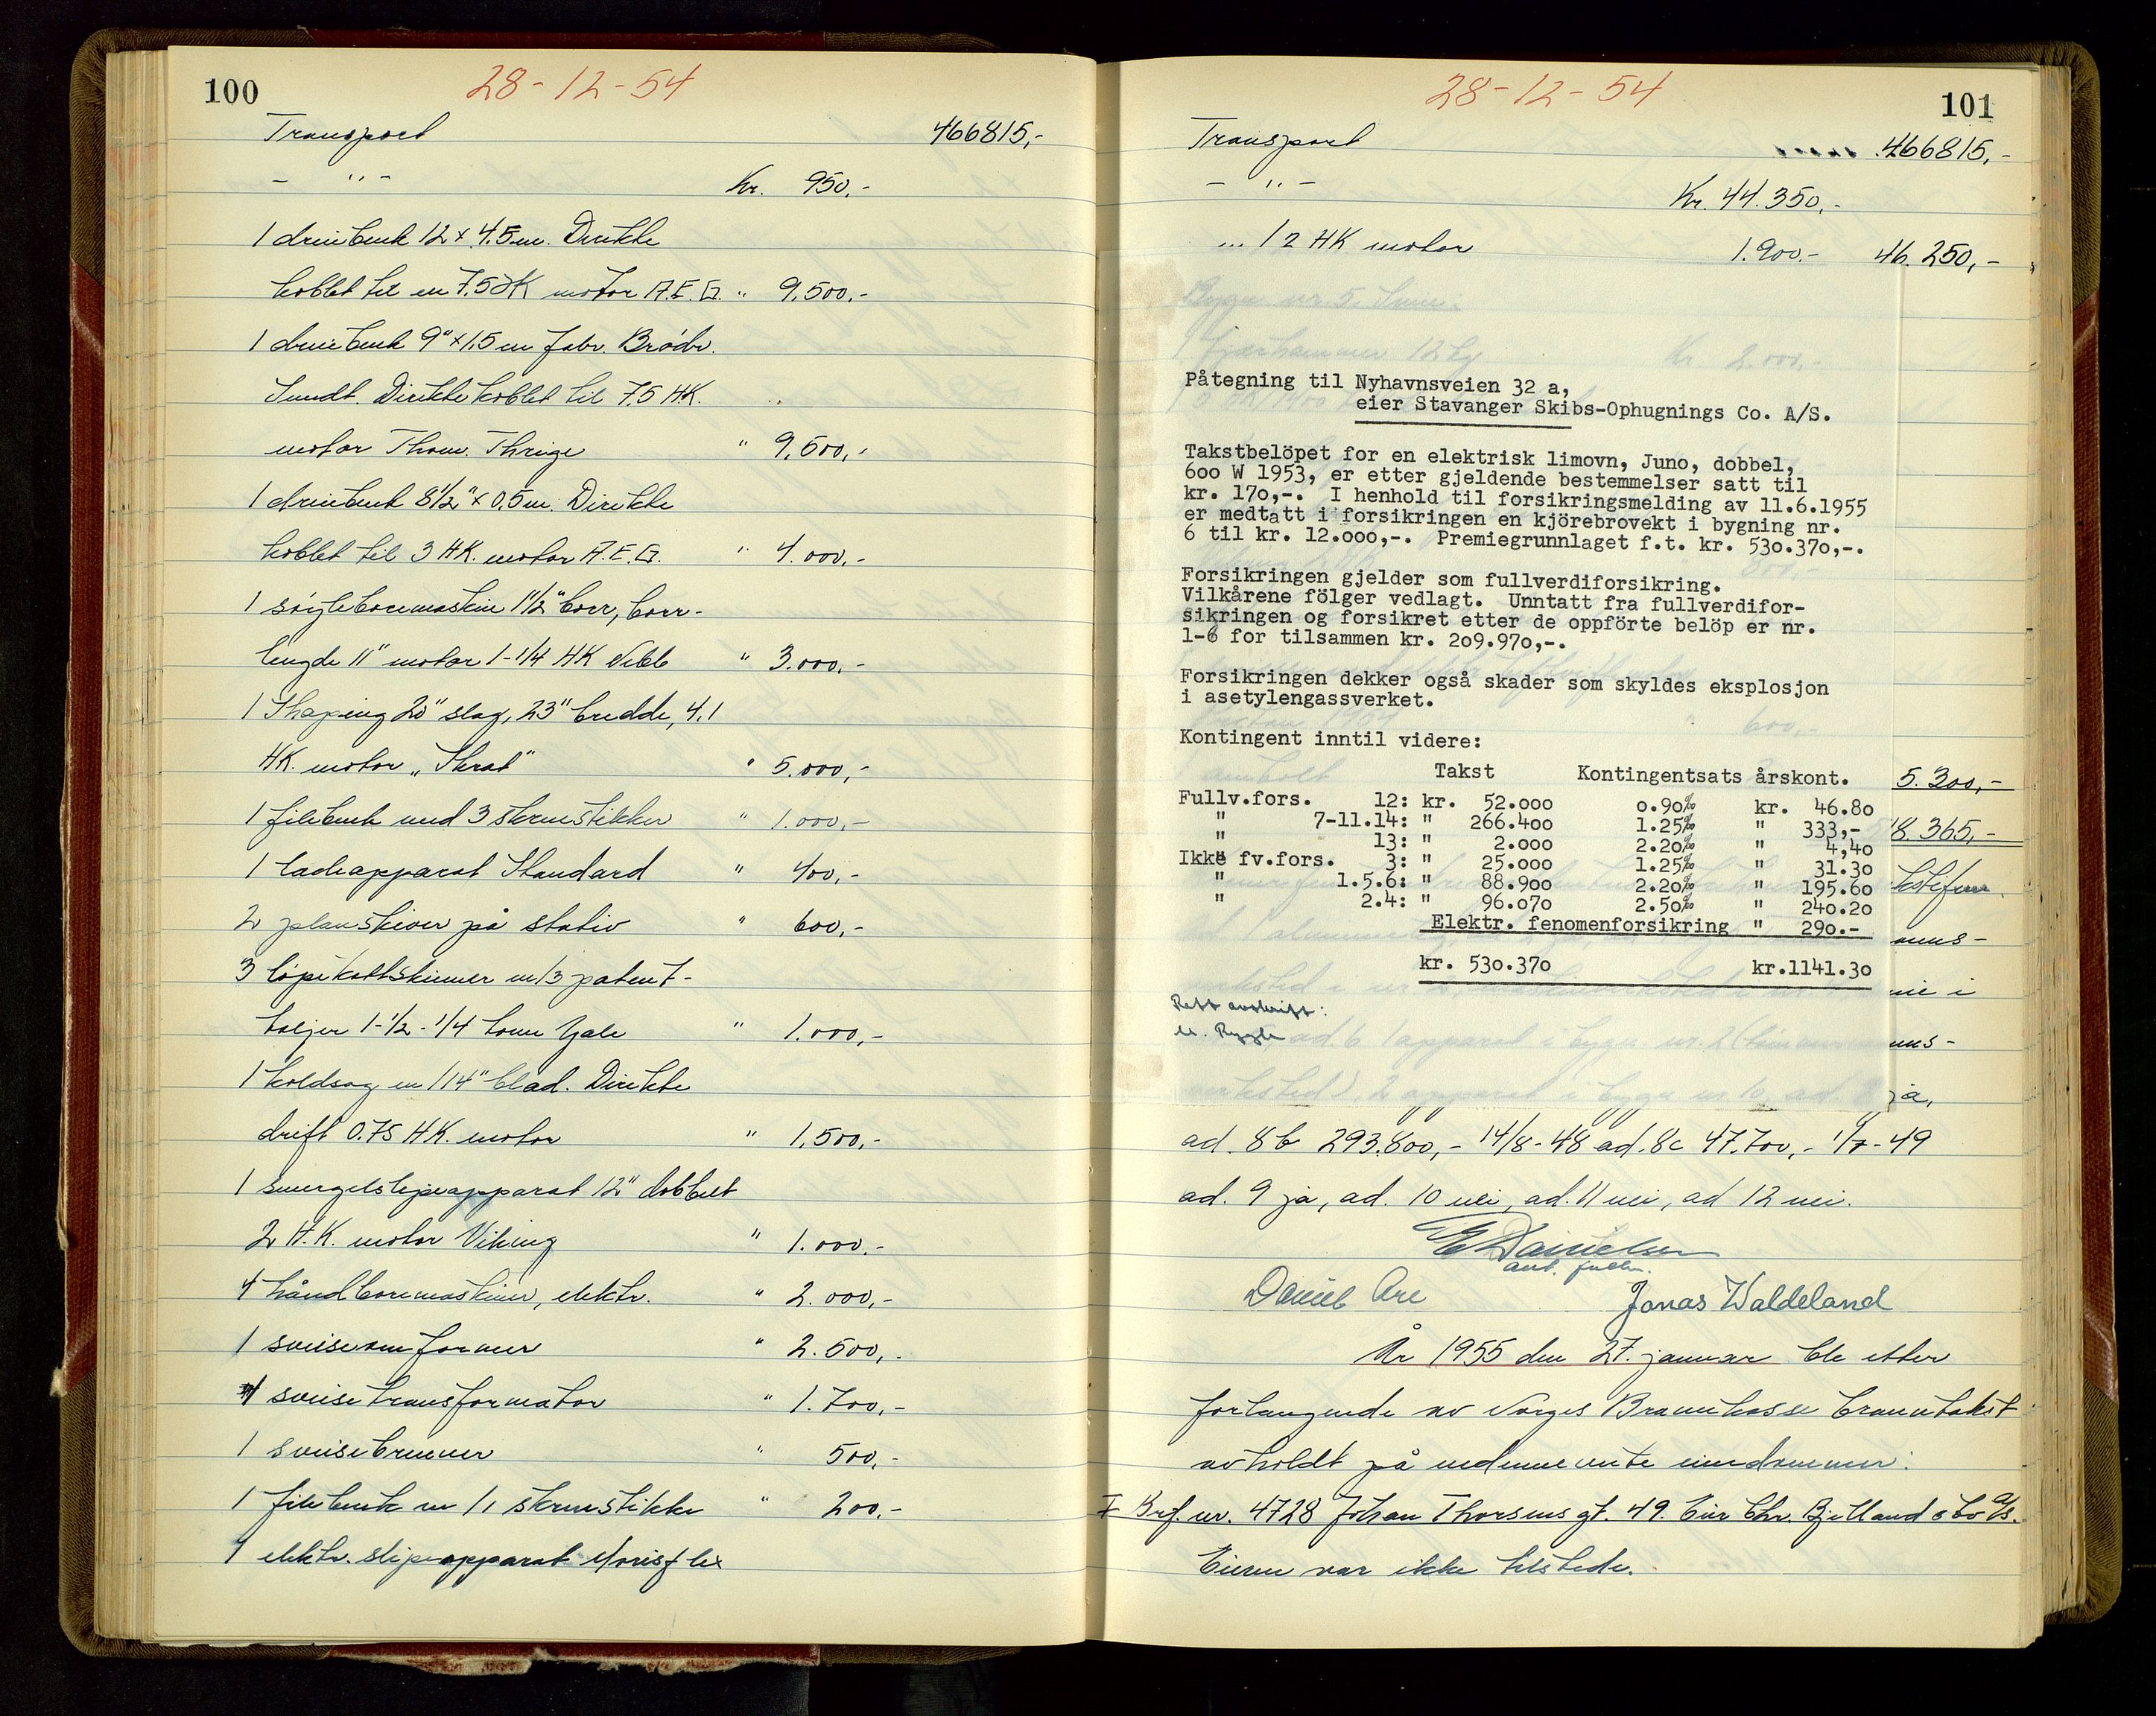 100
28-12-54
Transport 466815,-
- " - Kr. 950,-
1 dreiebenk 12 x 4.5 m. Direkte
koblet til en 7.5 HK motor A.E.G. " 9.500,-
1 dreiebenk 9" x 1.5 m fabr. Brødr.
Sundt. Direkte koblet til 7.5 HK.
motor Thom. Thrige " 9.500,-
1 dreiebenk 8 1/2" x 0,5 m. Direkte
koblet til 3 HK. motor A.E.G. " 4.000,-
1 søyleboremaskin 1 1/2" borr, borr-
lengde 11" motor 1-1/4 HK Nebb " 3.000,-
1 Shaping 20" slag, 23" bredde, 4,1
HK. motor „Skrat" " 5.000,-
1 filebenk med 3 skrustikker " 1.000,-
1 ladeapparat Standard " 400,-
2 planskiver på stativ " 600,-
3 løpekattskinner m/3 patent-
taljer 1-1/2-1/4 tonn Yale " 1.000,-
1 koldsag m/14" blad. Direkte
drift 0.75 HK. motor " 1.500,-
1 smergelslipeapparat 12" dobbelt
2 H.K. motor Viking " 1.000.-
4 håndboremaskiner, elektr. " 2.000,-
1 sveiseomformer " 2.500,-
1 sveisetransformator " 1.700,-
1 sveisebrenner " 500,-
1 filebenk m/1 skrustikke " 200.-
1 elektr. slipeapparat
101
28-12-54
Transport 466815,-
- " - Kr. 44.350,-
... 1 2 HK motor 1.900.- 46.250,-
Bygn. nr. 5. Smie:
1 fjærhammer 12 kg Kr 2.000,-
Påtegning til Nyhavnsveien 32 a,
eier Stavanger Skibs-Ophugnings Co. A/S.
Takstbelöpet for en elektrisk limovn, Juno, dobbel,
600 W 1953, er etter gjeldende bestemmelser satt til
kr. 170,-. I henhold til forsikringsmelding av 11.6.1955
er medtatt i forsikringen en kjörebrovekt i bygning nr.
6 til kr. 12.000,-. Premiegrunnlaget f.t. kr. 530.370,-.
Forsikringen gjelder som fullverdiforsikring.
Vilkårene fölger vedlagt. Unntatt fra fullverdifor-
sikringen og forsikret etter de oppförte belöp er nr.
1-6 for tilsammen kr. 209.970,-.
Forsikringen dekker også skader som skyldes eksplosjon
i asetylengassverket.
600,-
Kontingent inntil videre:
Takst Kontingentsats årskont. 5.300,-
Fullv.fors. 12: kr. 52.000 0.90‰ kr. 46.80
" 7-11.14: " 266.400 1.25‰ " 333,- 18.365,-
" 13: " 2.000 2.20‰ " 4,40
Ikke fv.fors. 3: " 25.000 1.25‰ " 31.30
" 1.5.6: " 88.900 2.20‰ " 195.60
" 2.4: " 96.070 2.50‰ " 240.20
Elektr. fenomenforsikring " 290.-
kr. 530.370 kr.1141.30
Rett avskrift:
ja,
ad. 8b 293.800,- 14/8-48 ad. 8c 47.700,- 1/7-49
ad. 9 ja, ad. 10 nei, ad. 11 nei, ad 12 nei.
E Danielsen
aut. fullm.
Daniel Are Jonas Waldeland
År 1955 den 27. januar ble etter
forlangende av Norges Brannkasse branntakst
avholdt på nedennevnte eiendommer:
I Brf. nr. 4728 Johan Thorsens gt. 49. Eier Chr. Bjelland & Co A/S.
Eieren var ikke tilstede.